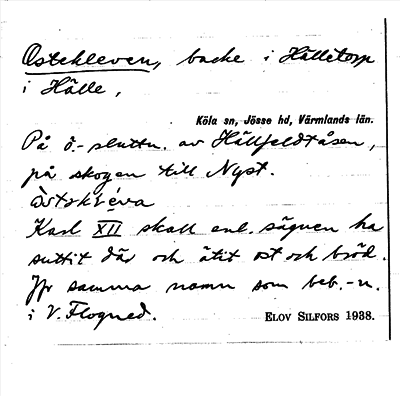 Ostekleven, backe i Hälletorp
i Hälle,
Köla sn, Jösse hd, Värmlands län.
På ö.-sluttn. av Hällfjeldtåsen,
på skogen till Nyst.
Karl XII skall enl. sägnen ha
suttit där och ätit ost och bröd.
Jfr samma namn som beb.-n.
i V. Flogned.
ELOV SILFORS 1938.